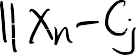 || x_n - c_j